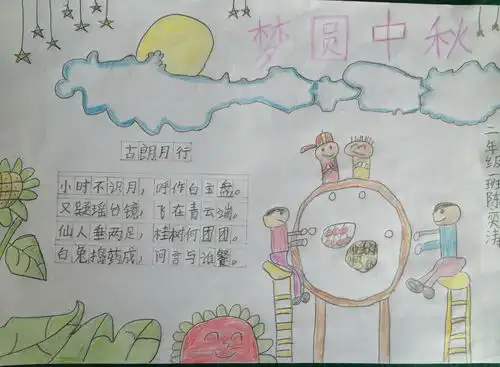 梦圆中秋
古朗月行
小时不识月，呼作白玉盘。
又疑瑶台镜，飞在青云端。
仙人垂两足，桂树何团团。
白兔捣药成，问言与谁餐。
二年级 班陈奕